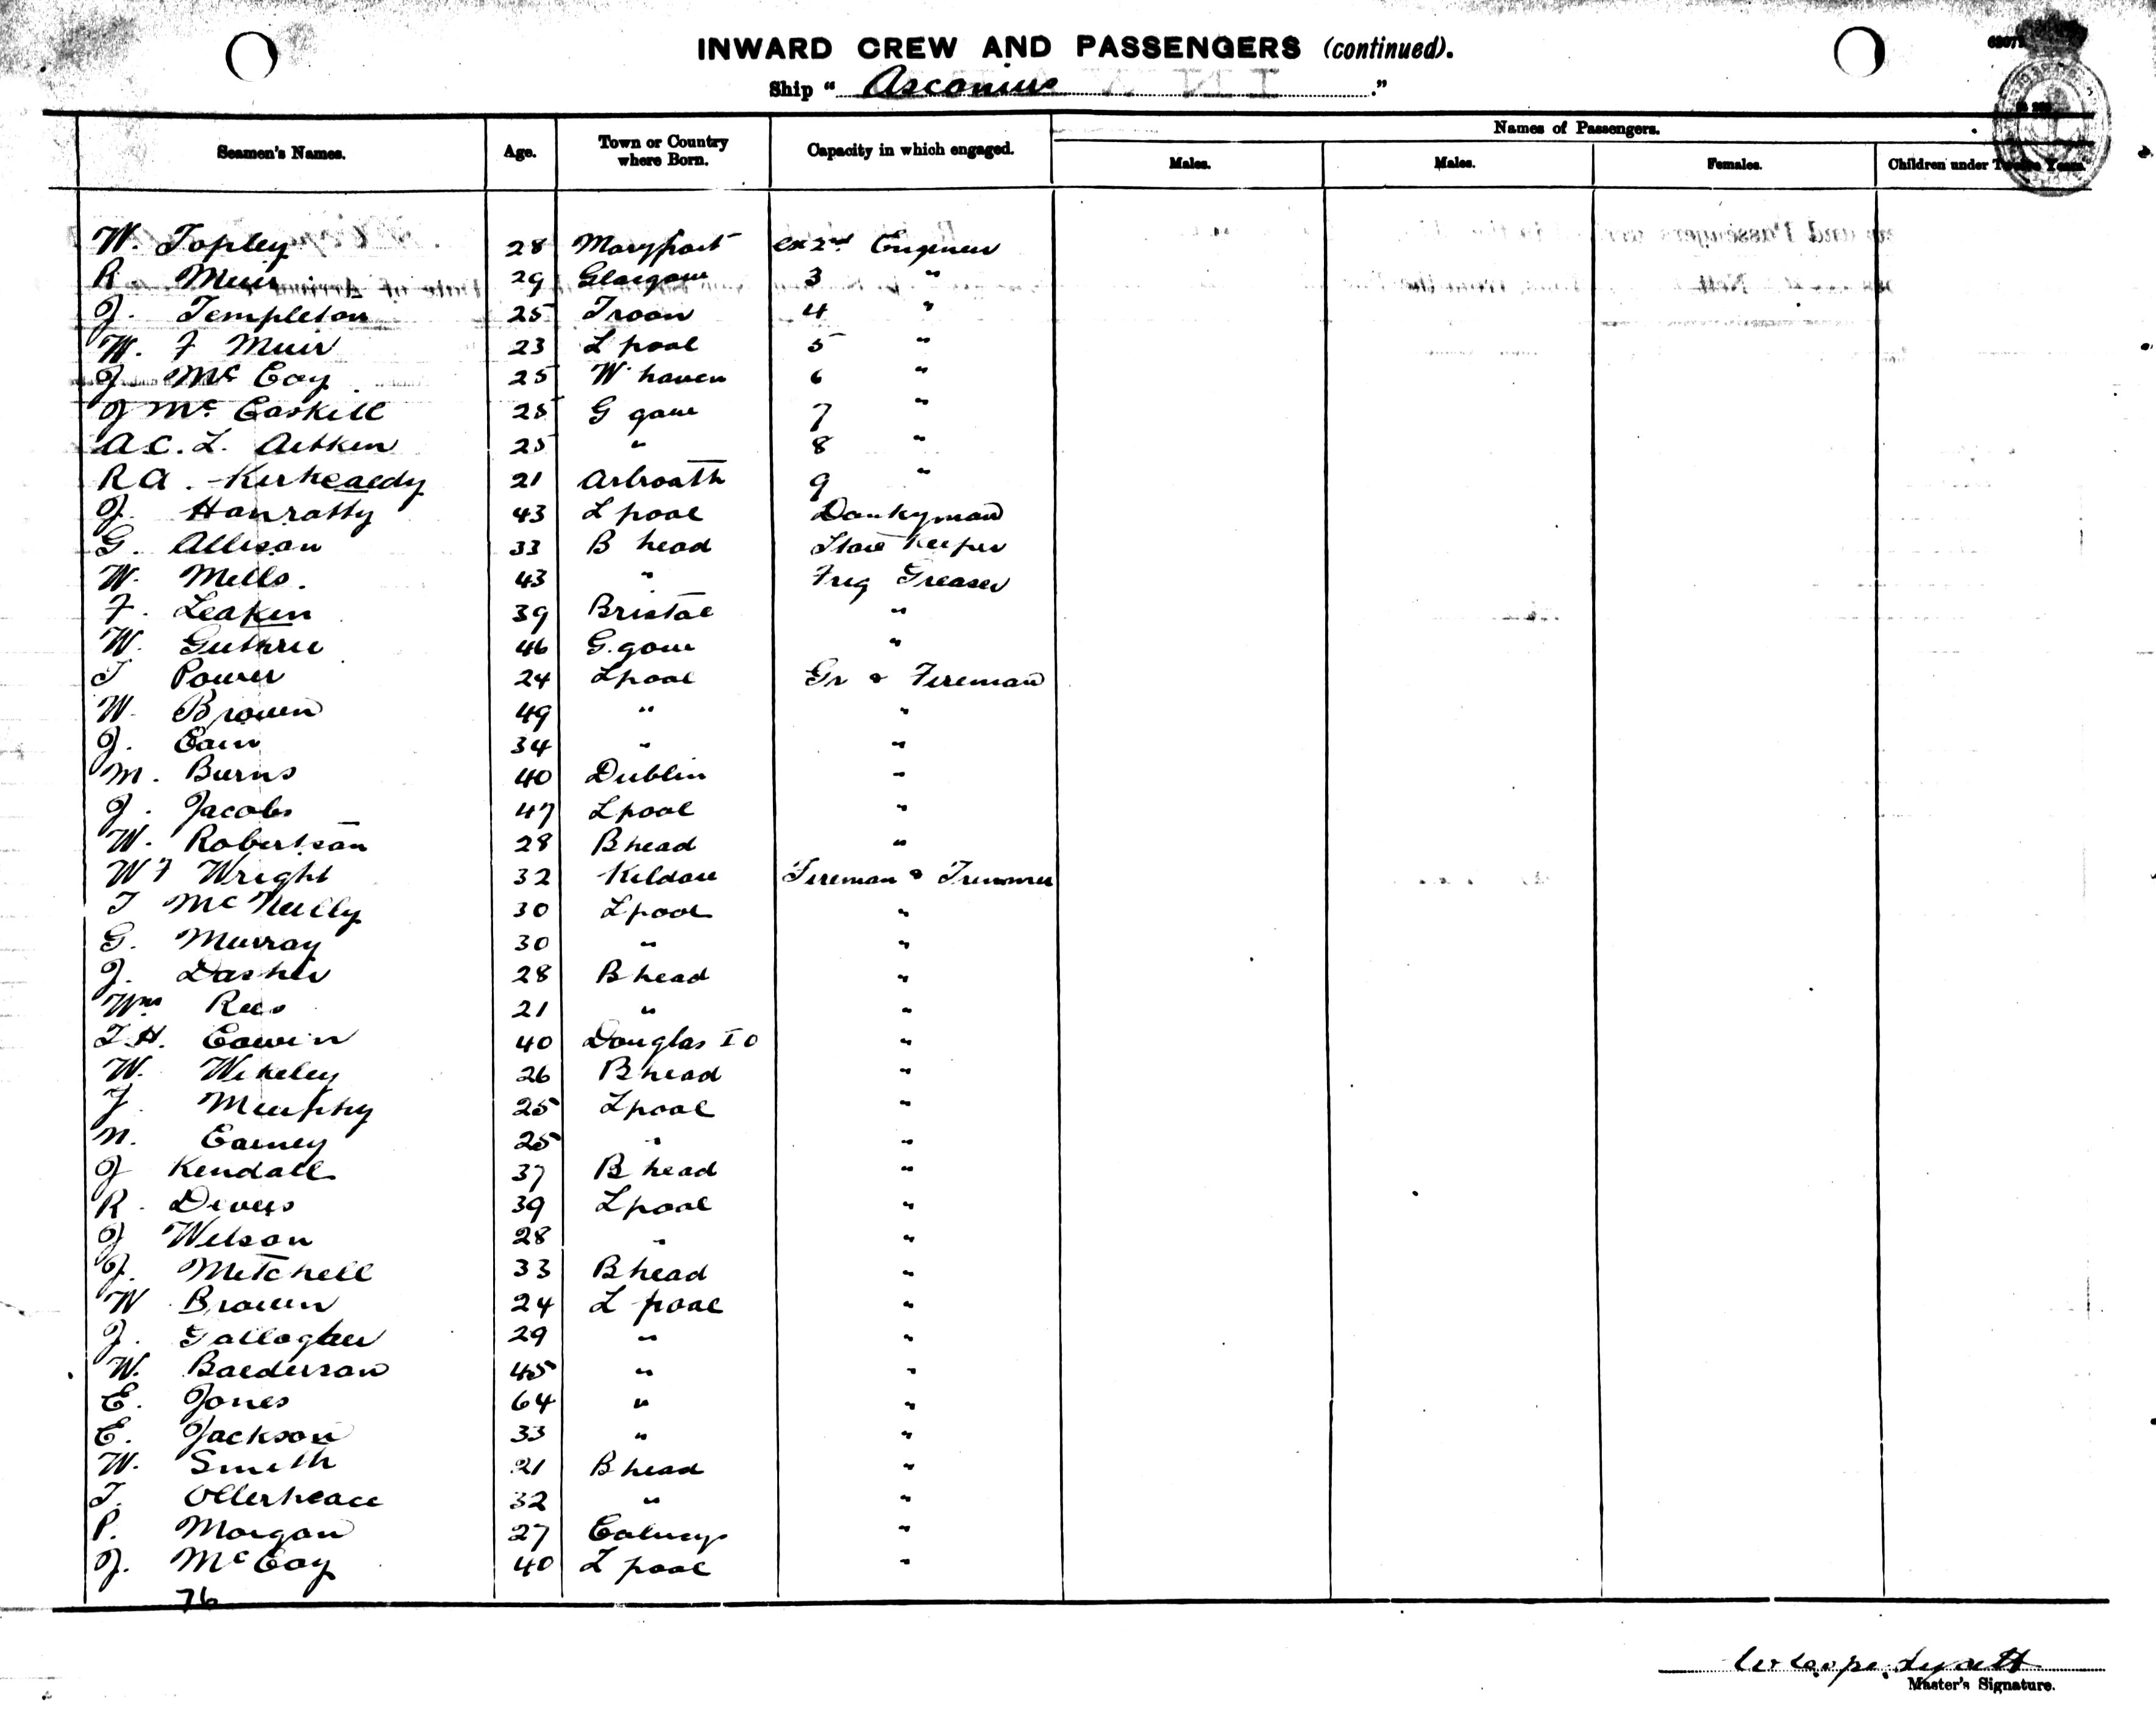 INWARD CREW AND PASSENGERS (continued).
Ship " Ascanius "
Seamen's Names. Age. Town or Country where Born. Capacity in which engaged. Names of Passengers.
Males. Males. Females. Children under Twelve Years.
W. Topley 28 Maryport Ex 2nd Engineer
R. Muir 29 Glasgow 3 "
J. Templeton 25 Troon 4 "
W. F Muir 23 L pool 5 "
J. Mc Coy 25 W haven 6 "
J Mc Caskill 25 G gow 7 "
A.C. L. Aitken 25 " 8 "
R A. Kirkcaldy 21 Arbroath 9 "
J. Hanratty 43 L pool Donkyman
G. Allison 33 B head Store Keeper
W. Mills. 43 " Frig Greaser
F. Leakin 39 Bristol "
W. Guthrie 46 G. gow "
T Power 24 Lpool Gr & Fireman
W. Brown 49 " "
J. Cain 34 " "
M. Burns 40 Dublin "
J. Jacobs 47 Lpool "
W. Robertson 28 B head "
W F Wright 32 Kildare Fireman & Trimmer
T Mc Neilly 30 Lpool "
G. Murray 30 " "
J. Dasher 28 B head "
Wm Rees 21 " "
T.H. Cowin 40 Douglas I O "
W. Wikeley 26 B head "
J. Murphy 25 Lpool "
N. Carney 25 " "
J Kendall 37 B head "
R. Divers 39 Lpool "
J Wilson 28 " "
J. Mitchell 33 B head "
W Brown 24 L pool "
J. Gallagher 29 " "
W. Balderson 45 " "
E. Jones 64 " "
E. Jackson 33 " "
W. Smith 21 B head "
T. Ollerhead 32 " "
P. Morgan 27 "
J. Mc Coy 40 L pool "
76
Master's Signature.